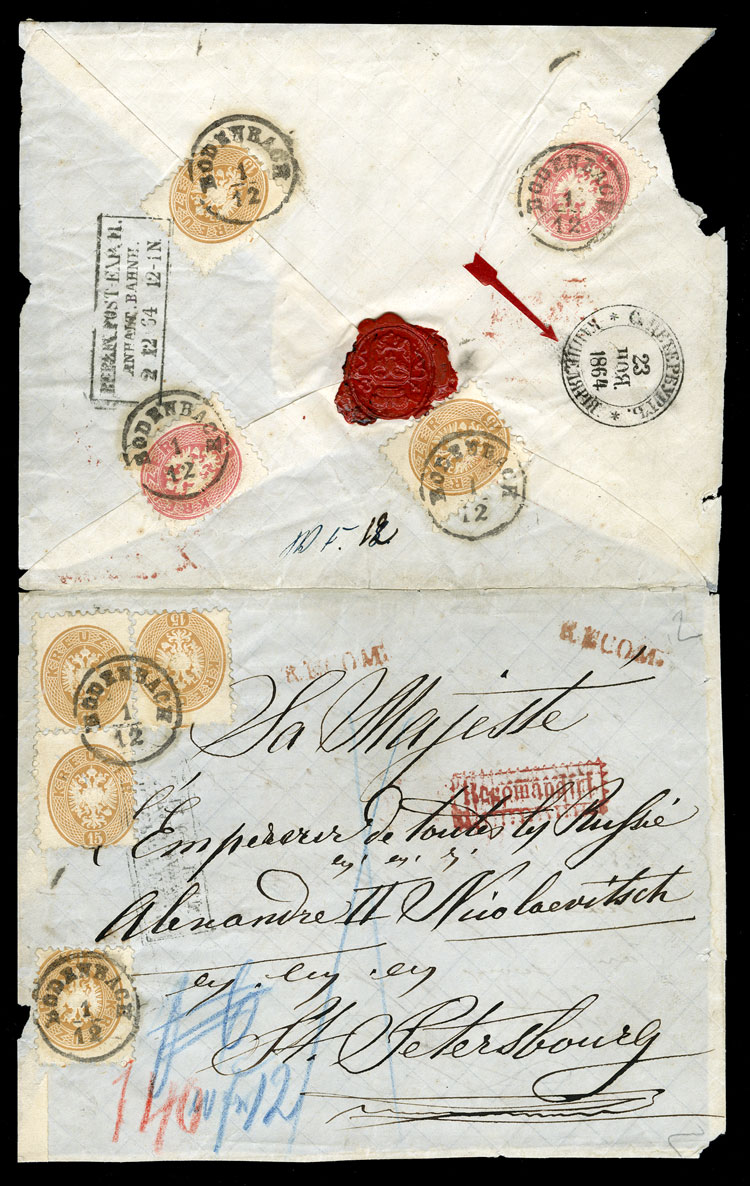 BODENBACH
1
12
BODENBACH
1
12
POST-EXP. II.
ANHALT. BAHNH.
2 12 64 12-1N.
С.ПЕТЕРБУРГЪ.
23
НОЯ.
1864
BODENBACH
1
12
BODENBACH
1
12
12
KREUZER
15
KREUZER
15
BODENBACH
1
12
RECOM.
RECOM.
Sa Majesté
Recomandirt
L'Empereur de toutes les Russie
Alexandre II Nicolaevitsch
St. Petersbourg
BODENBACH
1
12
140
12